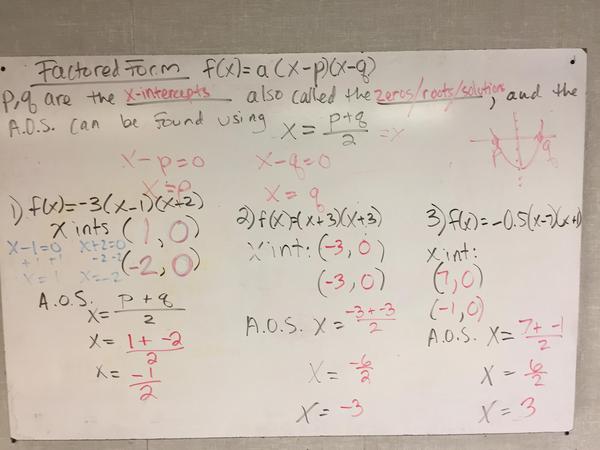 Factored Form f(x) = a(x-p)(x-q)
p,q are the x-intercepts also called the zeros/roots/solutions, and the
A.O.S. can be found using x = p+q/2 = x
x-p=0 x-q=0
x=p x = q
p q
1) f(x)=-3(x-1)(x+2)
x ints (1, 0)
(-2, 0)
x-1=0 x+2=0
+1 +1 -2 -2
x=1 x=-2
A.O.S. x= p+q/2
x= 1+-2/2
x= -1/2
2) f(x)=(x+3)(x+3)
x int: (-3, 0)
(-3, 0)
A.O.S. x= -3+-3/2
x= -6/2
x= -3
3) f(x)=-0.5(x-7)(x+1)
x int:
(7, 0)
(-1, 0)
A.O.S. x= 7+-1/2
x = 6/2
x = 3